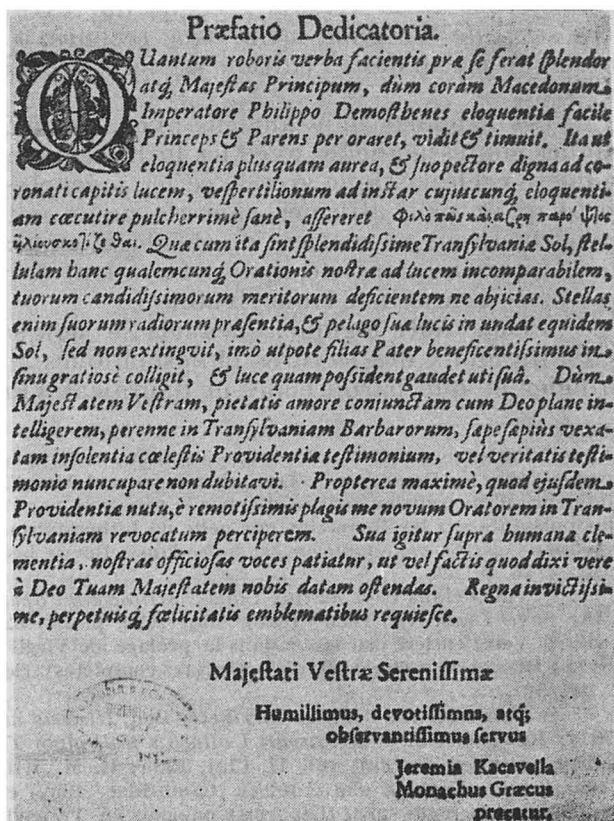 Præfatio Dedicatoria.
QUantum roboris verba facientis præ se ferat splendor
atq́; Majestas Principum, dùm coràm Macedonum
Imperatore Philippo Demosthenes eloquentia facile
Princeps & Parens per oraret, vidit & timuit. Ita ut
eloquentia plusquam aurea, & suo pectore digna ad co-
ronati capitis lucem, vespertilionum ad instar cujuscunq́; eloquenti-
am cœcutire pulcherrimè sanè, assereret
Quæ cum ita sint splendidissime Transylvaniæ Sol, stel-
lulam hanc qualemcunq́; Orationis nostræ ad lucem incomparabilem,
tuorum candidissimorum meritorum deficientem ne abjicias. Stellas
enim suorum radiorum præsentia, & pelago suæ lucis in undat equidem
Sol, sed non extingvit, imò utpote filias Pater beneficentissimus in
sinu gratiosè colligit, & luce quam possident gaudet uti suâ. Dùm
Majestatem Vestram, pietatis amore coniunctam cum Deo plane in-
telligerem, perenne in Transylvaniam Barbarorum, sæpe sæpiùs vexa-
tam insolentia cœlestis Providentiæ testimonium, vel veritatis testi-
monio nuncupare non dubitavi. Propterea maximè, quod ejusdem
Providentiæ nutu, è remotissimis plagis me novum Oratorem in Tran-
sylvaniam revocatum perciperem. Sua igitur supra humana cle-
mentia, nostras officiosas voces patiatur, ut vel factis quod dixi vere
à Deo Tuam Majestatem nobis datam ostendas. Regna invictissi-
me, perpetuisq́; fœlicitatis emblematibus requiesce.
Majestati Vestræ Serenissimæ
Humillimus, devotissimns, atq́;
observantissimus servus
Jeremia Kacavella
Monachus Græcus
precatur.